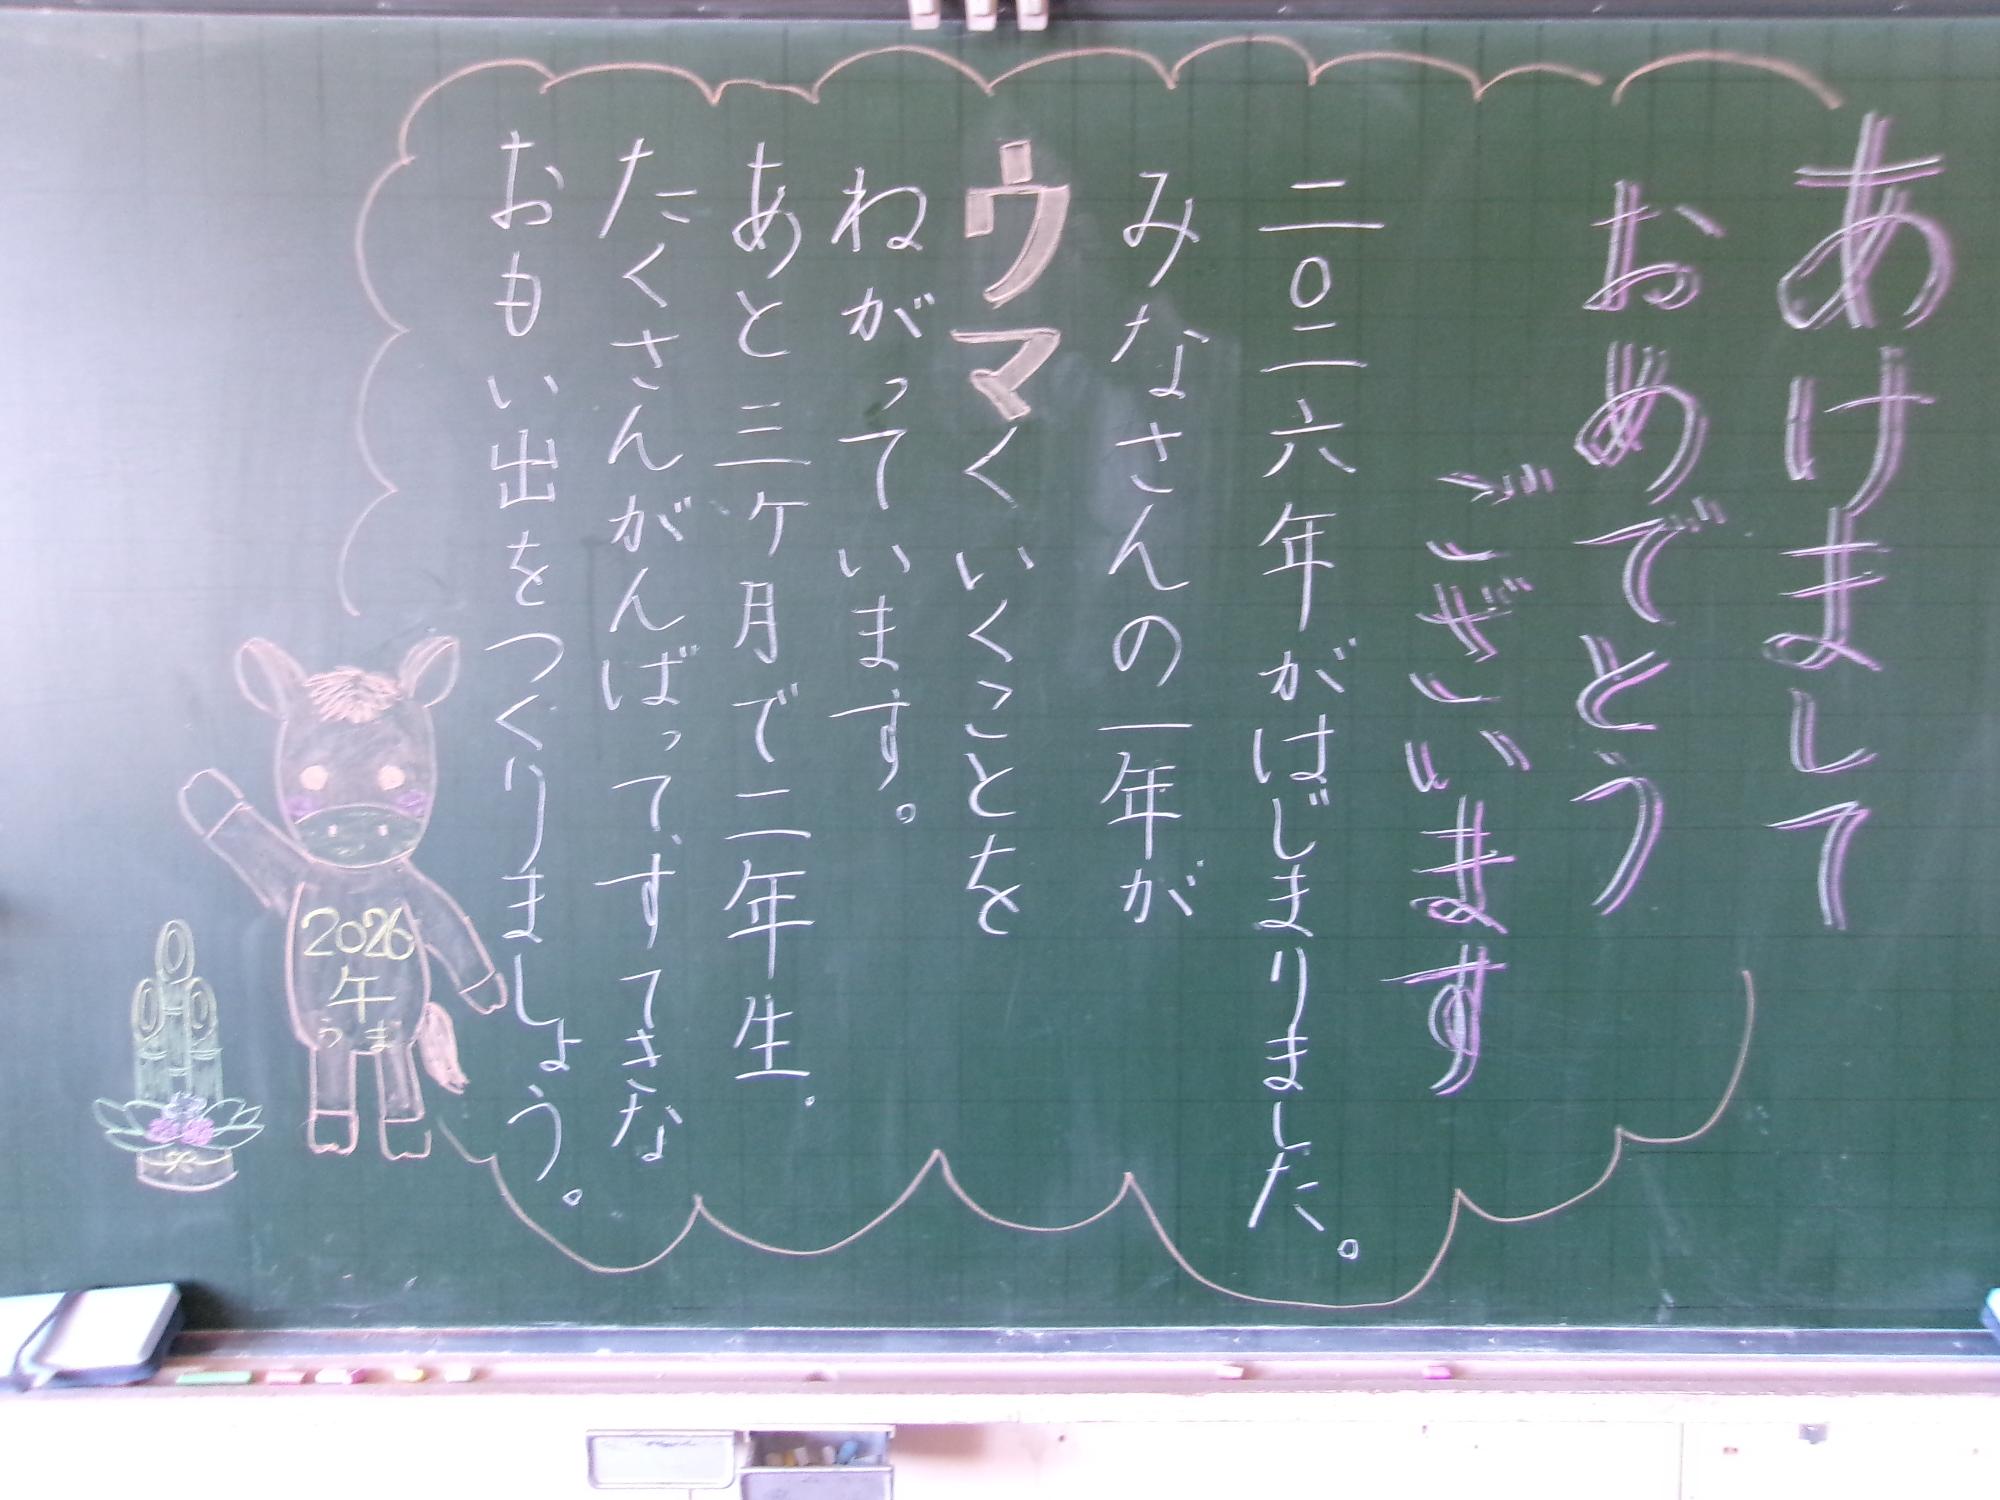 あけまして
おめでとう
ございます
二〇二六年がはじまりました。
みなさんの一年が
ウマくいくことを
ねがっています。
あと三ヶ月で二年生。
たくさんがんばって、すてきな
おもい出をつくりましょう。
2026
午
うま